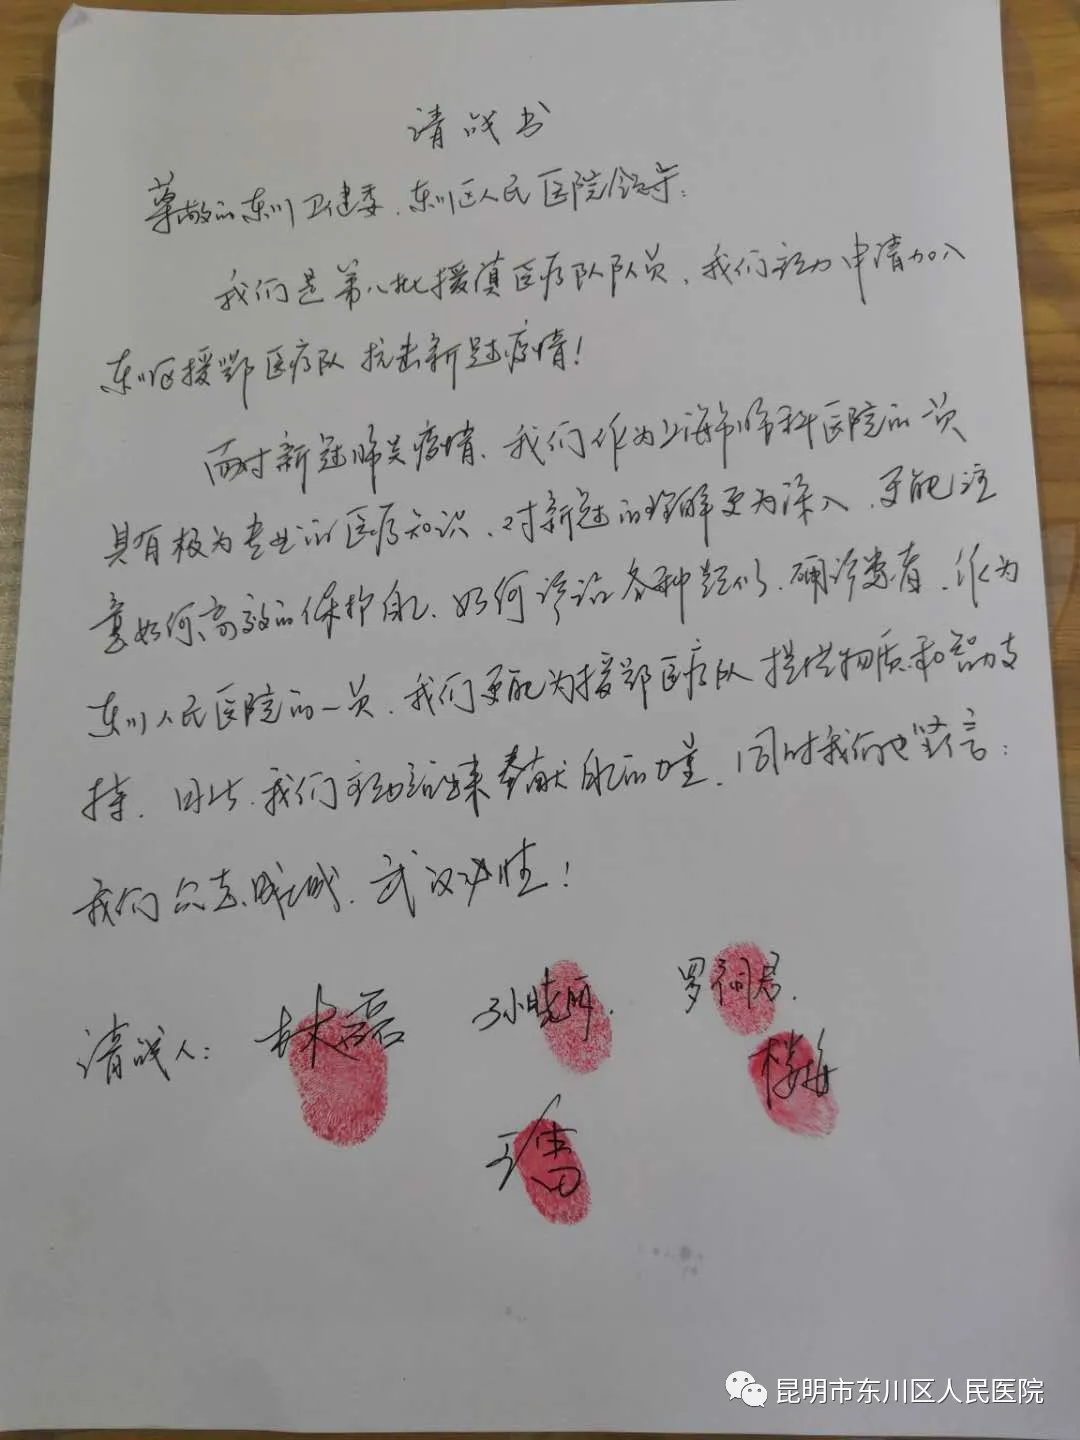 请战书
尊敬的东川卫健委、东川区人民医院领导：
我们是第八批援滇医疗队队员，我们主动申请加入
东川区援鄂医疗队抗击新冠疫情！
面对新冠肺炎疫情、我们作为上海市肺科医院的一员
具有极为专业的医疗知识、对新冠的理解更为深入、更能注
意如何高效的保护自己、如何诊治各种疑似、确诊患者、作为
东川人民医院的一员、我们更能为援鄂医疗队提供物质和智力支
持．因此、我们主动站出来奉献自己的力量．同时我们也坚信：
我们众志成城．武汉必胜！
请战人：林磊 孙晓丽．罗
楼海
王
昆明市东川区人民医院